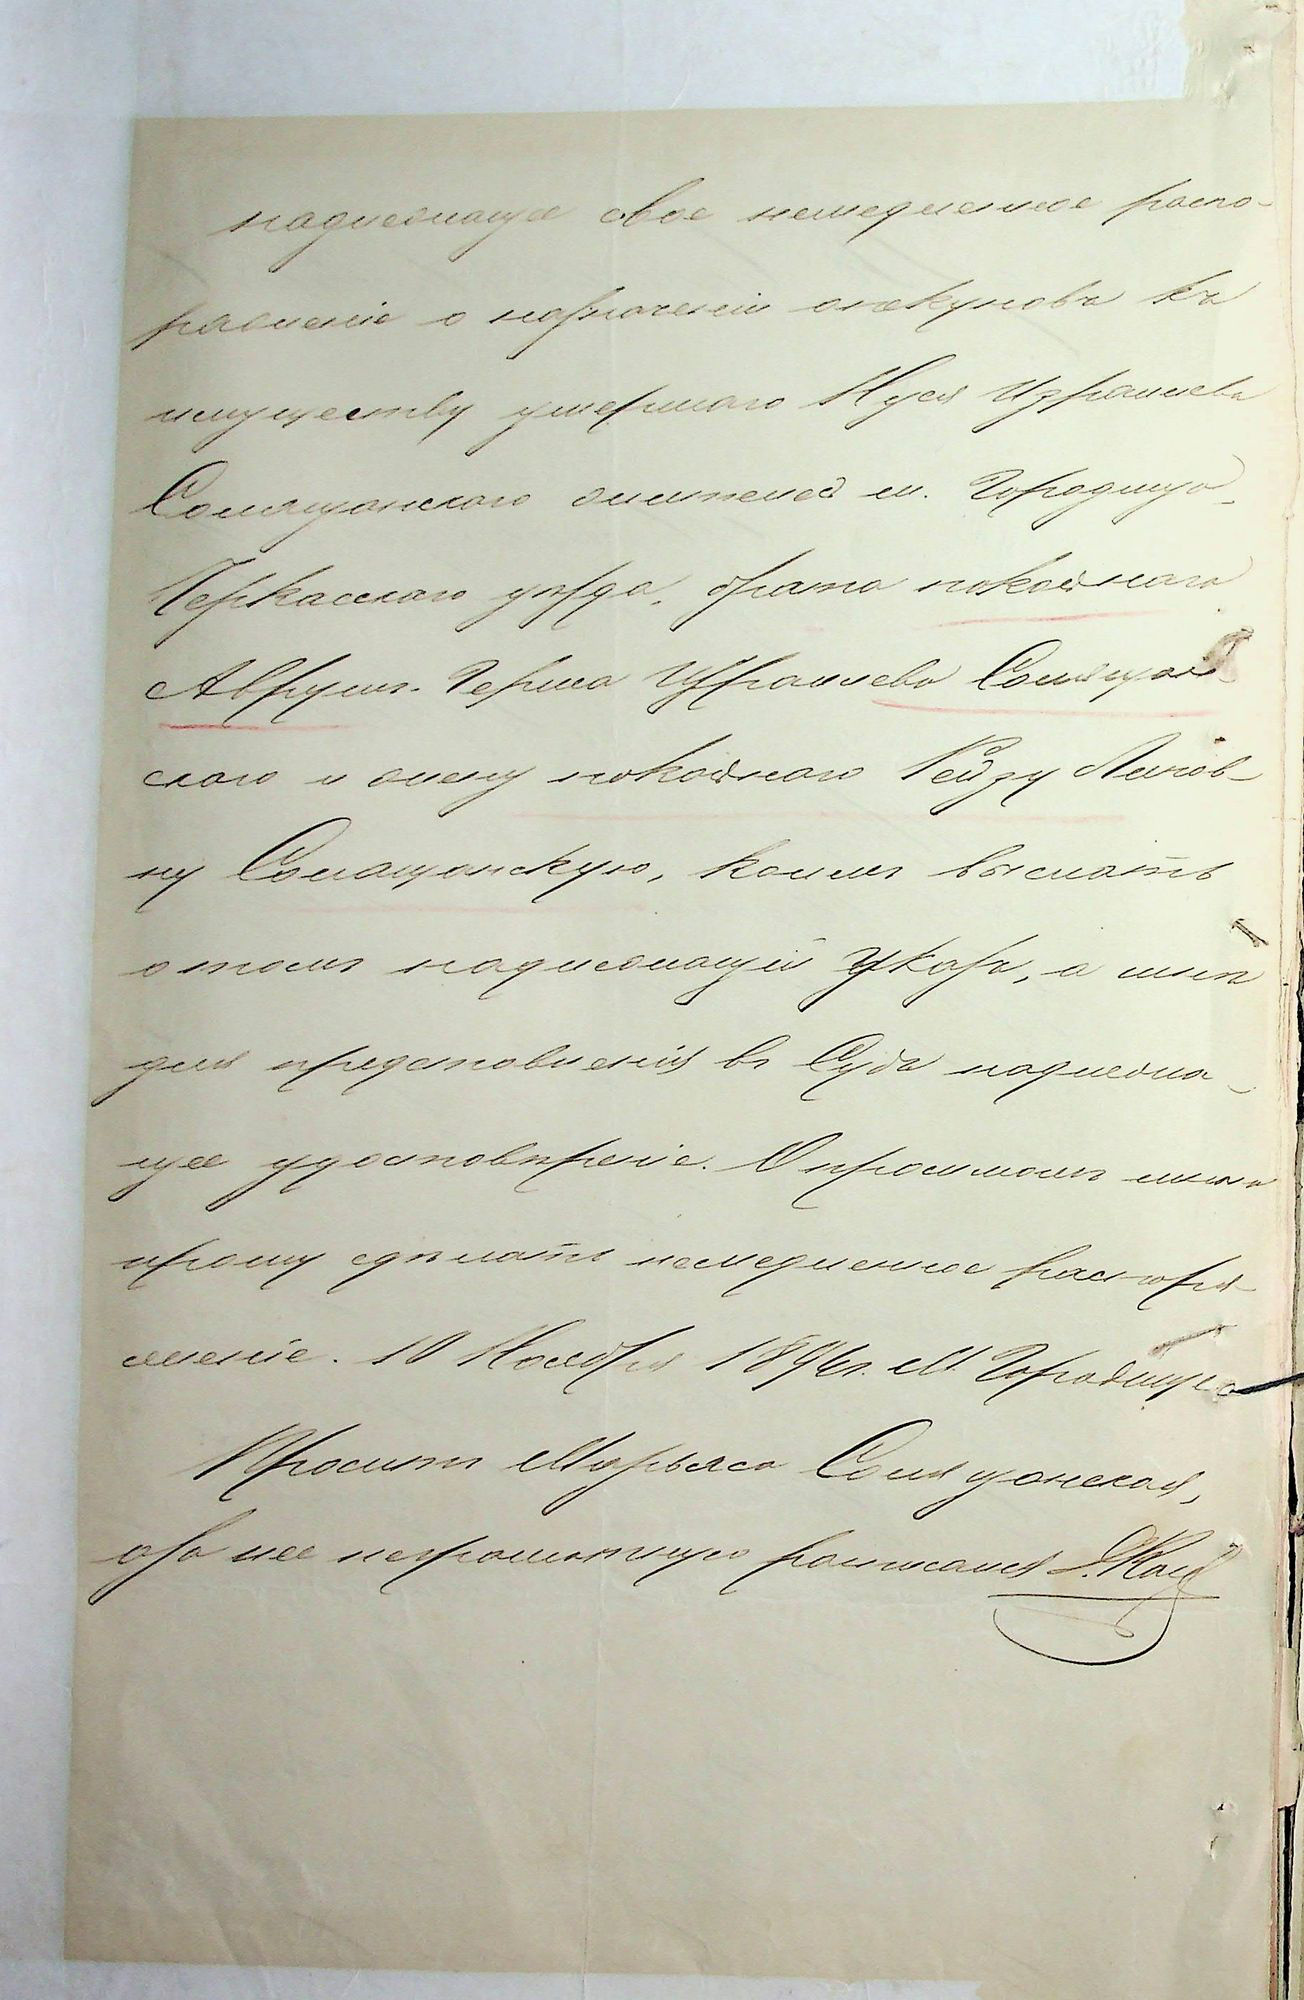 надлежащее свое немедленное распо-
ряжение о назначеніи опекуновъ къ
имуществу умершаго Нуся Израилева
Сомящанскаго жителей м. Городища
Черкасскаго уѣзда, брата покойнаго
Аврум-Герша Израилева Сомящан
скаго и жену покойнаго Рейзу Лейов-
ну Сомящанскую, коимъ выслать
о томъ надлежащій Указъ, а мнѣ
для представленія въ Судъ надлежа-
щее удостовѣреніе. О просимомъ
прошу сдѣлать немедленное распоря-
женіе. 10 Ноября 189 г. М. Городище
Проситъ Марьяса Сомящанская,
а за нее неграмотную росписался